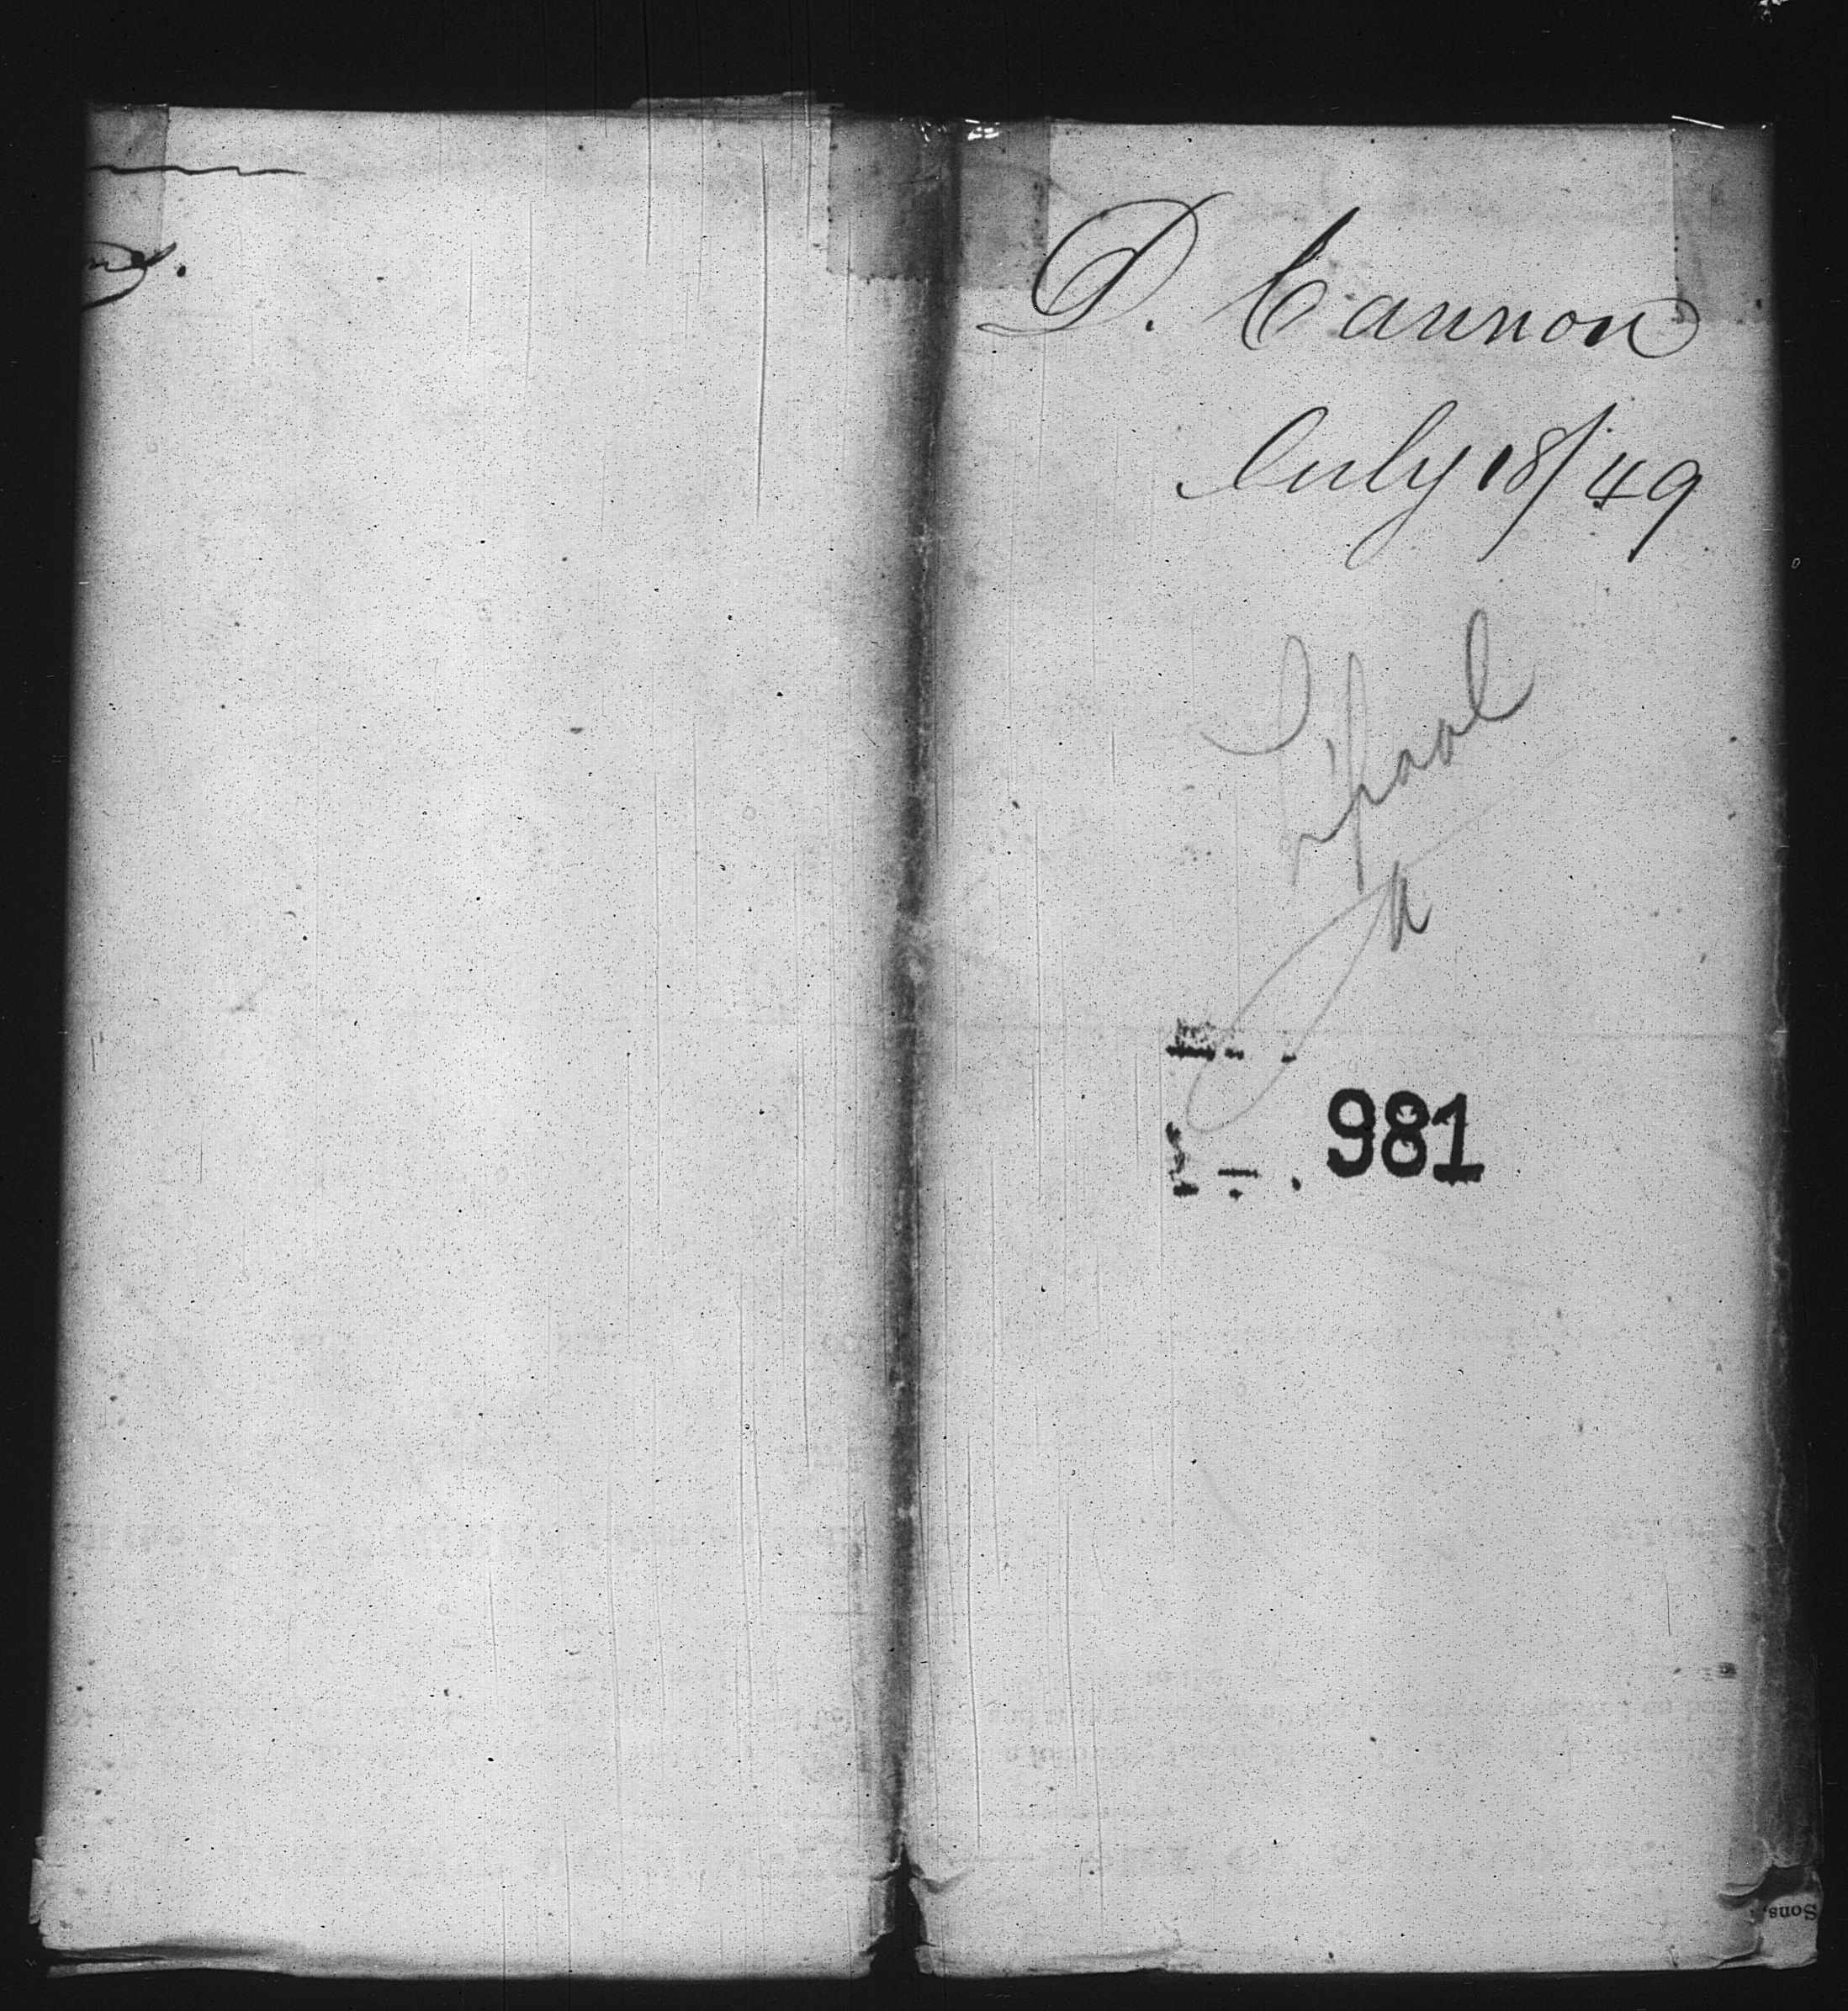 D. Cannon
July 18/49
L'pool
981
Sons,